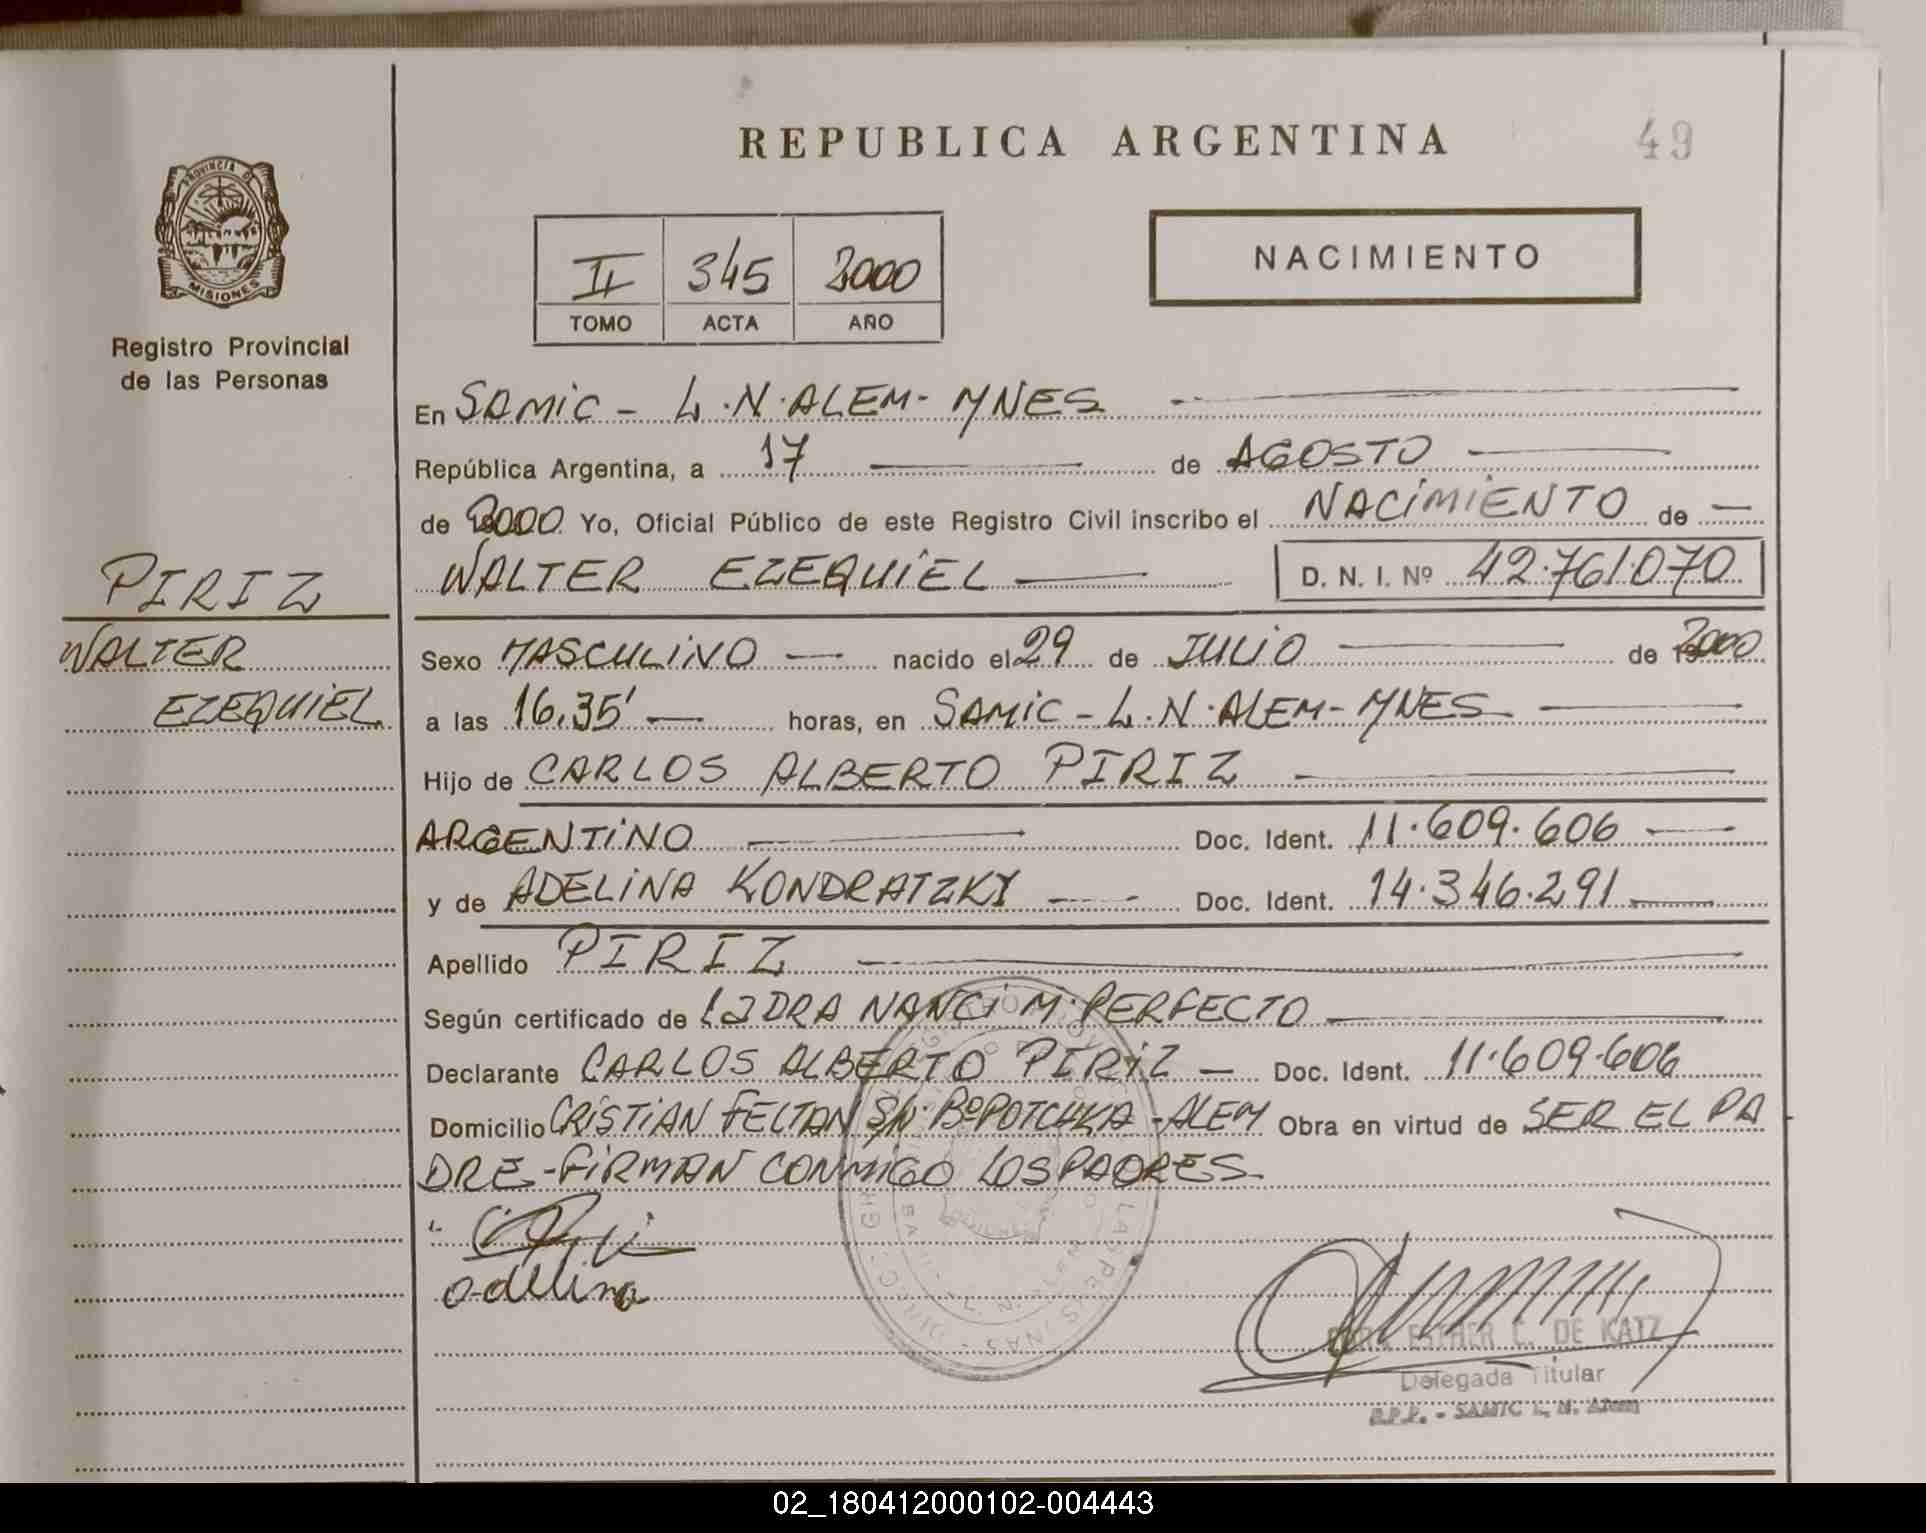 REPUBLICA ARGENTINA
49
PROVINCIA DE
MISIONES
Registro Provincial
de las Personas
II 345 2000
TOMO ACTA AÑO
NACIMIENTO
En SAMIC - L.N.ALEM - MNES
República Argentina, a 17 de AGOSTO
de 2000 Yo, Oficial Público de este Registro Civil inscribo el NACIMIENTO de
WALTER EZEQUIEL D. N. I. Nº 42.761.070
PIRIZ
WALTER
EZEQUIEL
Sexo MASCULINO nacido el 29 de JULIO de 2000
a las 16,35' horas, en SAMIC - L.N.ALEM - MNES
Hijo de CARLOS ALBERTO PIRIZ
ARGENTINO Doc. Ident. 11.609.606
y de ADELINA KONDRATZKY Doc. Ident. 14.346.291
Apellido PIRIZ
Según certificado de LA DRA NANCI M. PERFECTO
Declarante CARLOS ALBERTO PIRIZ Doc. Ident. 11.609.606
Domicilio CRISTIAN FELTAN S/N. Bº POTCHKA - ALEM Obra en virtud de SER EL PA
DRE - FIRMAN CONMIGO LOS PADRES.
adelina
ESTHER C. DE KATZ
Delegada Titular
R.P.P. - SAMIC L. N. Alem
02_180412000102-004443